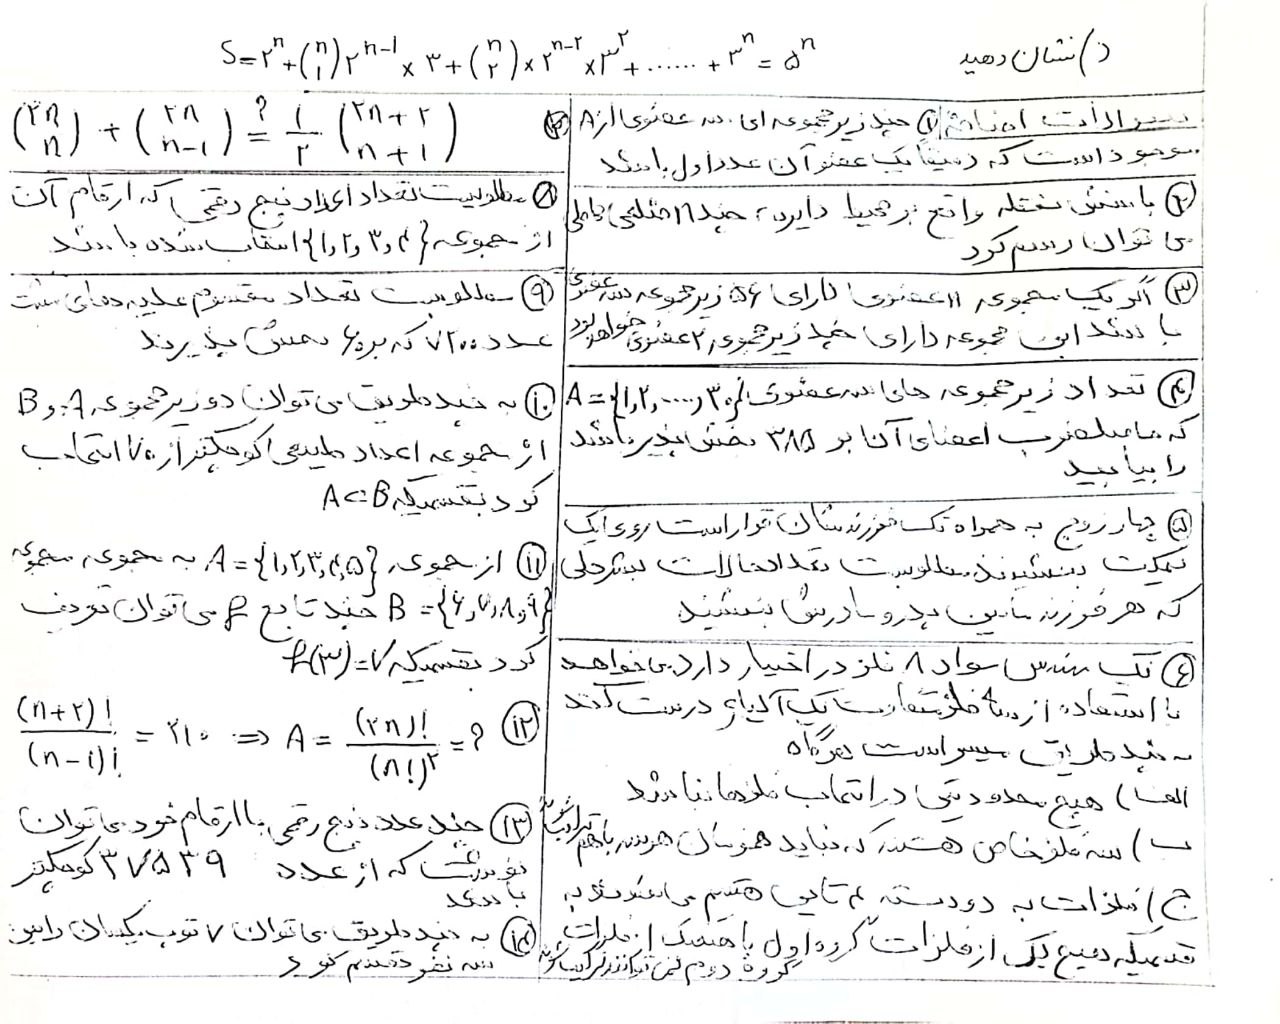 ذ) نشان دهید S = ۲^n + (n ۱) ۲^{n-۱} × ۳ + (n ۲) × ۲^{n-۲} × ۳^۲ + ...... + ۳^n = ۵^n
سوالات اضافه ① چند زیرمجموعه‌ای سه عضوی از A
موجود است که دقیقا یک عضو آن عدد اول باشد
② با شش نقطه واقع بر محیط دایره، چند n ضلعی
می توان رسم کرد
③ اگر یک مجموعه n عضوی دارای ۵۶ زیرمجموعه سه عضوی
باشد این مجموعه دارای چند زیرمجموعه ۲ عضوی خواهد بود
④ تعداد زیرمجموعه های سه عضوی A = {۱,۲,....,۳۰}
که حاصلضرب اعضای آنا بر ۳۸۵ بخش پذیر باشد
را بیابید
⑤ چهار زوج به همراه تک فرزندشان قرار است روی یک
نیمکت بنشینند مطلوبست تعداد حالات بشرطی
که هر فرزند مابین پدر و مادرش بنشیند
⑥ یک مهندس مواد ۸ فلز در اختیار دارد می خواهد
با استفاده از سه فلز متفاوت یک آلیاژ درست کند
به چند طریق میسر است هرگاه
الف) هیچ محدودیتی در انتخاب فلزها نباشد
ب) سه فلز خاص هستند که نباید همزمان هر سه باهم ترکیب شوند
ج) فلزات به دو دسته ۴ تایی تقسیم می شوند به
قسمیکه هیچ یک از فلزات گروه اول با هیچیک از فلزات
گروه دوم نمی توانند ترکیب شوند
(۲n n) + (۲n n-۱) =? ۱/۲ (۲n+۲ n+۱)
⑧ مطلوبست تعداد اعداد پنج رقمی که ارقام آن
از مجموعه {۱,۲,۳,۴} انتخاب شده باشند
⑨ مطلوبست تعداد مقسوم علیه های مثبت
عدد ۷۲۰۰ که بر ۶ بخش پذیرند
⑩ به چند طریق می توان دو زیرمجموعه A و B
از مجموعه اعداد طبیعی کوچکتر از ۷ انتخاب
کرد بقسمیکه A⊂B
⑪ از مجموعه A = {۱,۲,۳,۴,۵} به مجموعه
B = {۶,۷,۸,۹} چند تابع f می توان تعریف
کرد بقسمیکه f(۳)=۷
⑫ (n+۲)! / (n-۱)! = ۲۱۰ ⇒ A = (۲n)! / (n!)^۲ = ?
⑬ چند عدد پنج رقمی با ارقام خود می توان
نوشت که از عدد ۳۷۵۲۹ کوچکتر
باشد
⑭ به چند طریق می توان ۷ توپ یکسان را بین
سه نفر تقسیم کرد